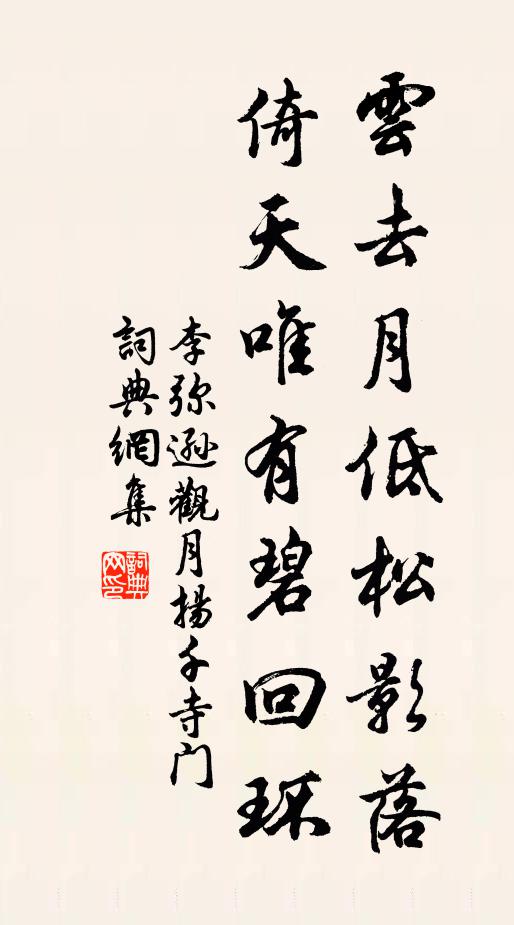 雲去月低松影落
倚天唯有碧回環
李弥遜觀月揚千寺門
詞典網集
詞典网印